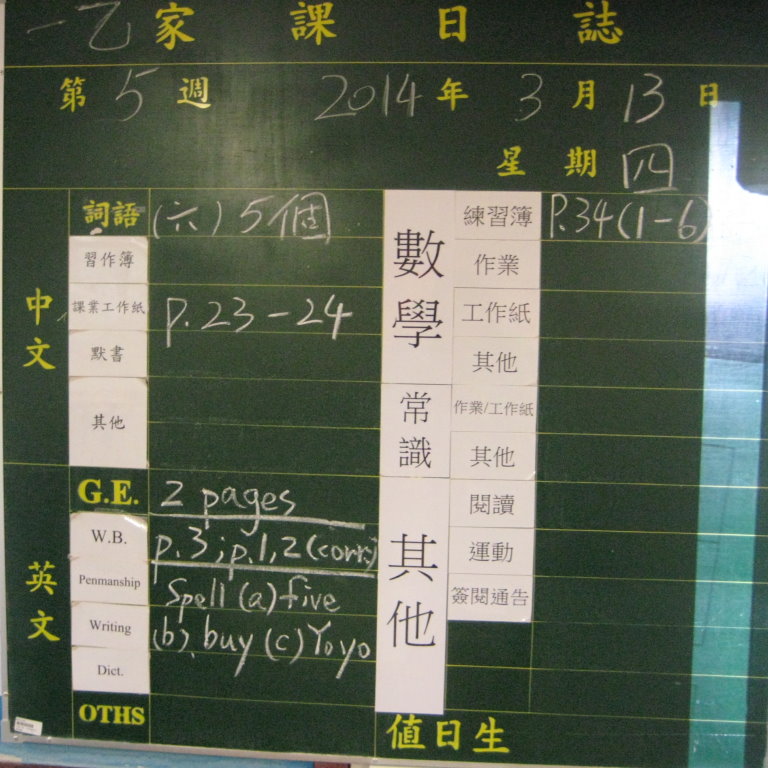 一乙家課日誌
第5週 2014年3月13日
星期四
中文
詞語 (六)5個
習作簿
課業工作紙 p.23-24
默書
其他
英文
G.E. 2 pages
W.B. p.3;p.1,2(corr.)
Penmanship Spell (a) five
Writing (b). buy (c) Yoyo
Dict.
OTHS
數學
練習簿 P.34(1-6)
作業
工作紙
其他
常識
作業/工作紙
其他
其他
閱讀
運動
簽閱通告
值日生